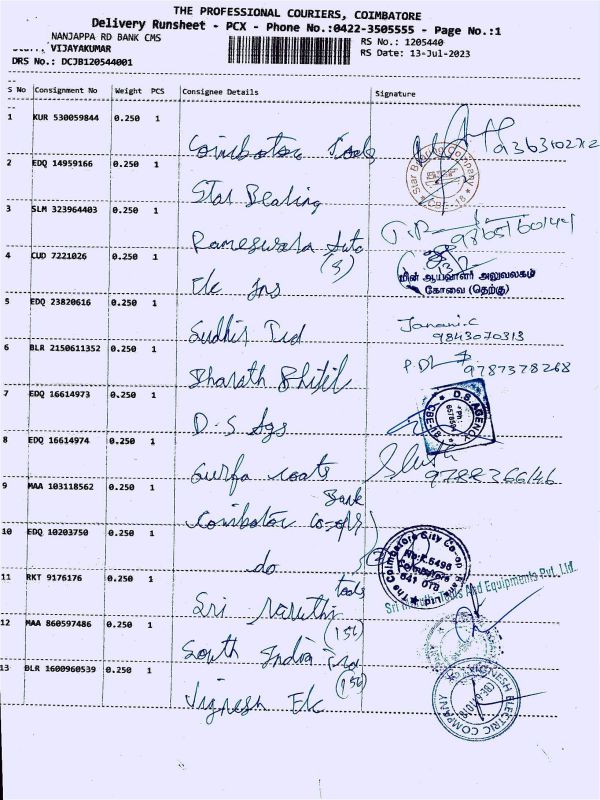 THE PROFESSIONAL COURIERS, COIMBATORE
Delivery Runsheet - PCX - Phone No.:0422-3505555 - Page No.:1
NANJAPPA RD BANK CMS
RS No.: 1205440
VIJAYAKUMAR
RS Date: 13-Jul-2023
DRS No.: DCJB120544001
S No Consignment No Weight PCS Consignee Details Signature
1 KUR 530059844 0.250 1
Coimbatore Tools
2 EDQ 14959166 0.250 1
Star Bearing
Star Bearing Company
3 SLM 323964403 0.250 1
Rameswara Auto
(3)
4 CUD 7221026 0.250 1
Ele Ins
மின் ஆய்வாளர் அலுவலகம்
கோவை (தெற்கு)
5 EDQ 23820616 0.250 1
Sudhir Trd
Janani.C
9843070313
6 BLR 2150611352 0.250 1
Bharath
9787378268
7 EDQ 16614973 0.250 1
D-S Ags
D.S. AGENCY
8 EDQ 16614974 0.250 1
Surfa coats
9788366146
9 MAA 103118562 0.250 1
Bank
Coimbatore Co-op
10 EDQ 10203750 0.250 1
do
The Coimbatore City Co-op
No.K.5498
Coimbatore
641 018
11 RKT 9176176 0.250 1
tools
Sri Maruthi
(156)
Sri Maruthi Tools And Equipments Pvt. Ltd.
12 MAA 860597486 0.250 1
South India Trd
(156)
13 BLR 1600960539 0.250 1
Vignesh Ele
VIGNESH ELECTRIC COMPANY